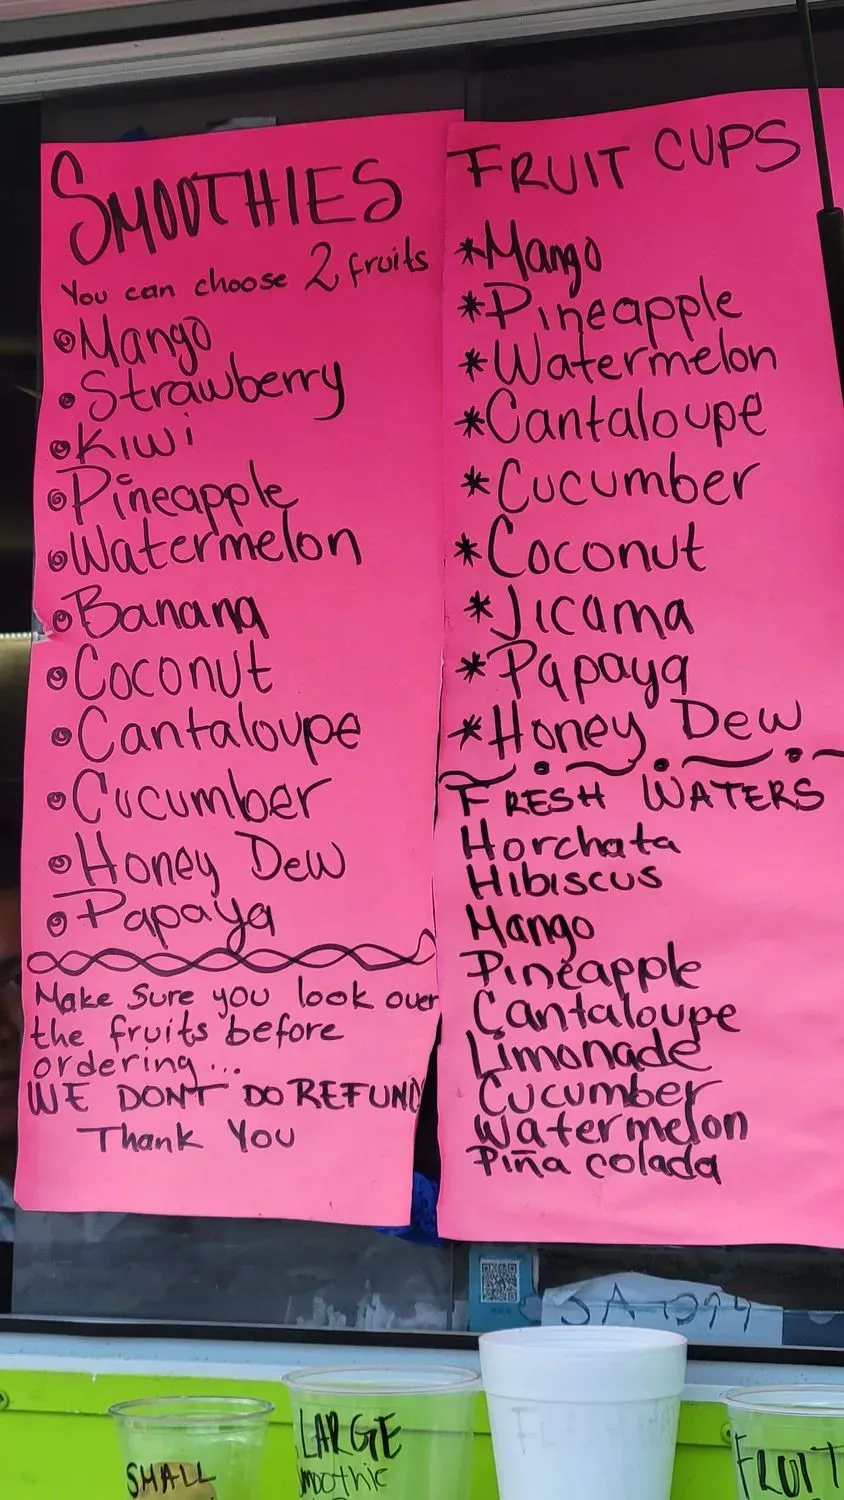 SMOOTHIES
You can choose 2 fruits
Mango
Strawberry
Kiwi
Pineapple
Watermelon
Banana
Coconut
Cantaloupe
Cucumber
Honey Dew
Papaya
Make Sure you look over
the fruits before
ordering...
WE DONT DO REFUND
Thank You
FRUIT CUPS
*Mango
*Pineapple
*Watermelon
*Cantaloupe
*Cucumber
*Coconut
*Jicama
*Papaya
*Honey Dew
FRESH WATERS
Horchata
Hibiscus
Mango
Pineapple
Cantaloupe
Limonade
Cucumber
Watermelon
Piña colada
SMALL
LARGE
Smoothie
FRUIT